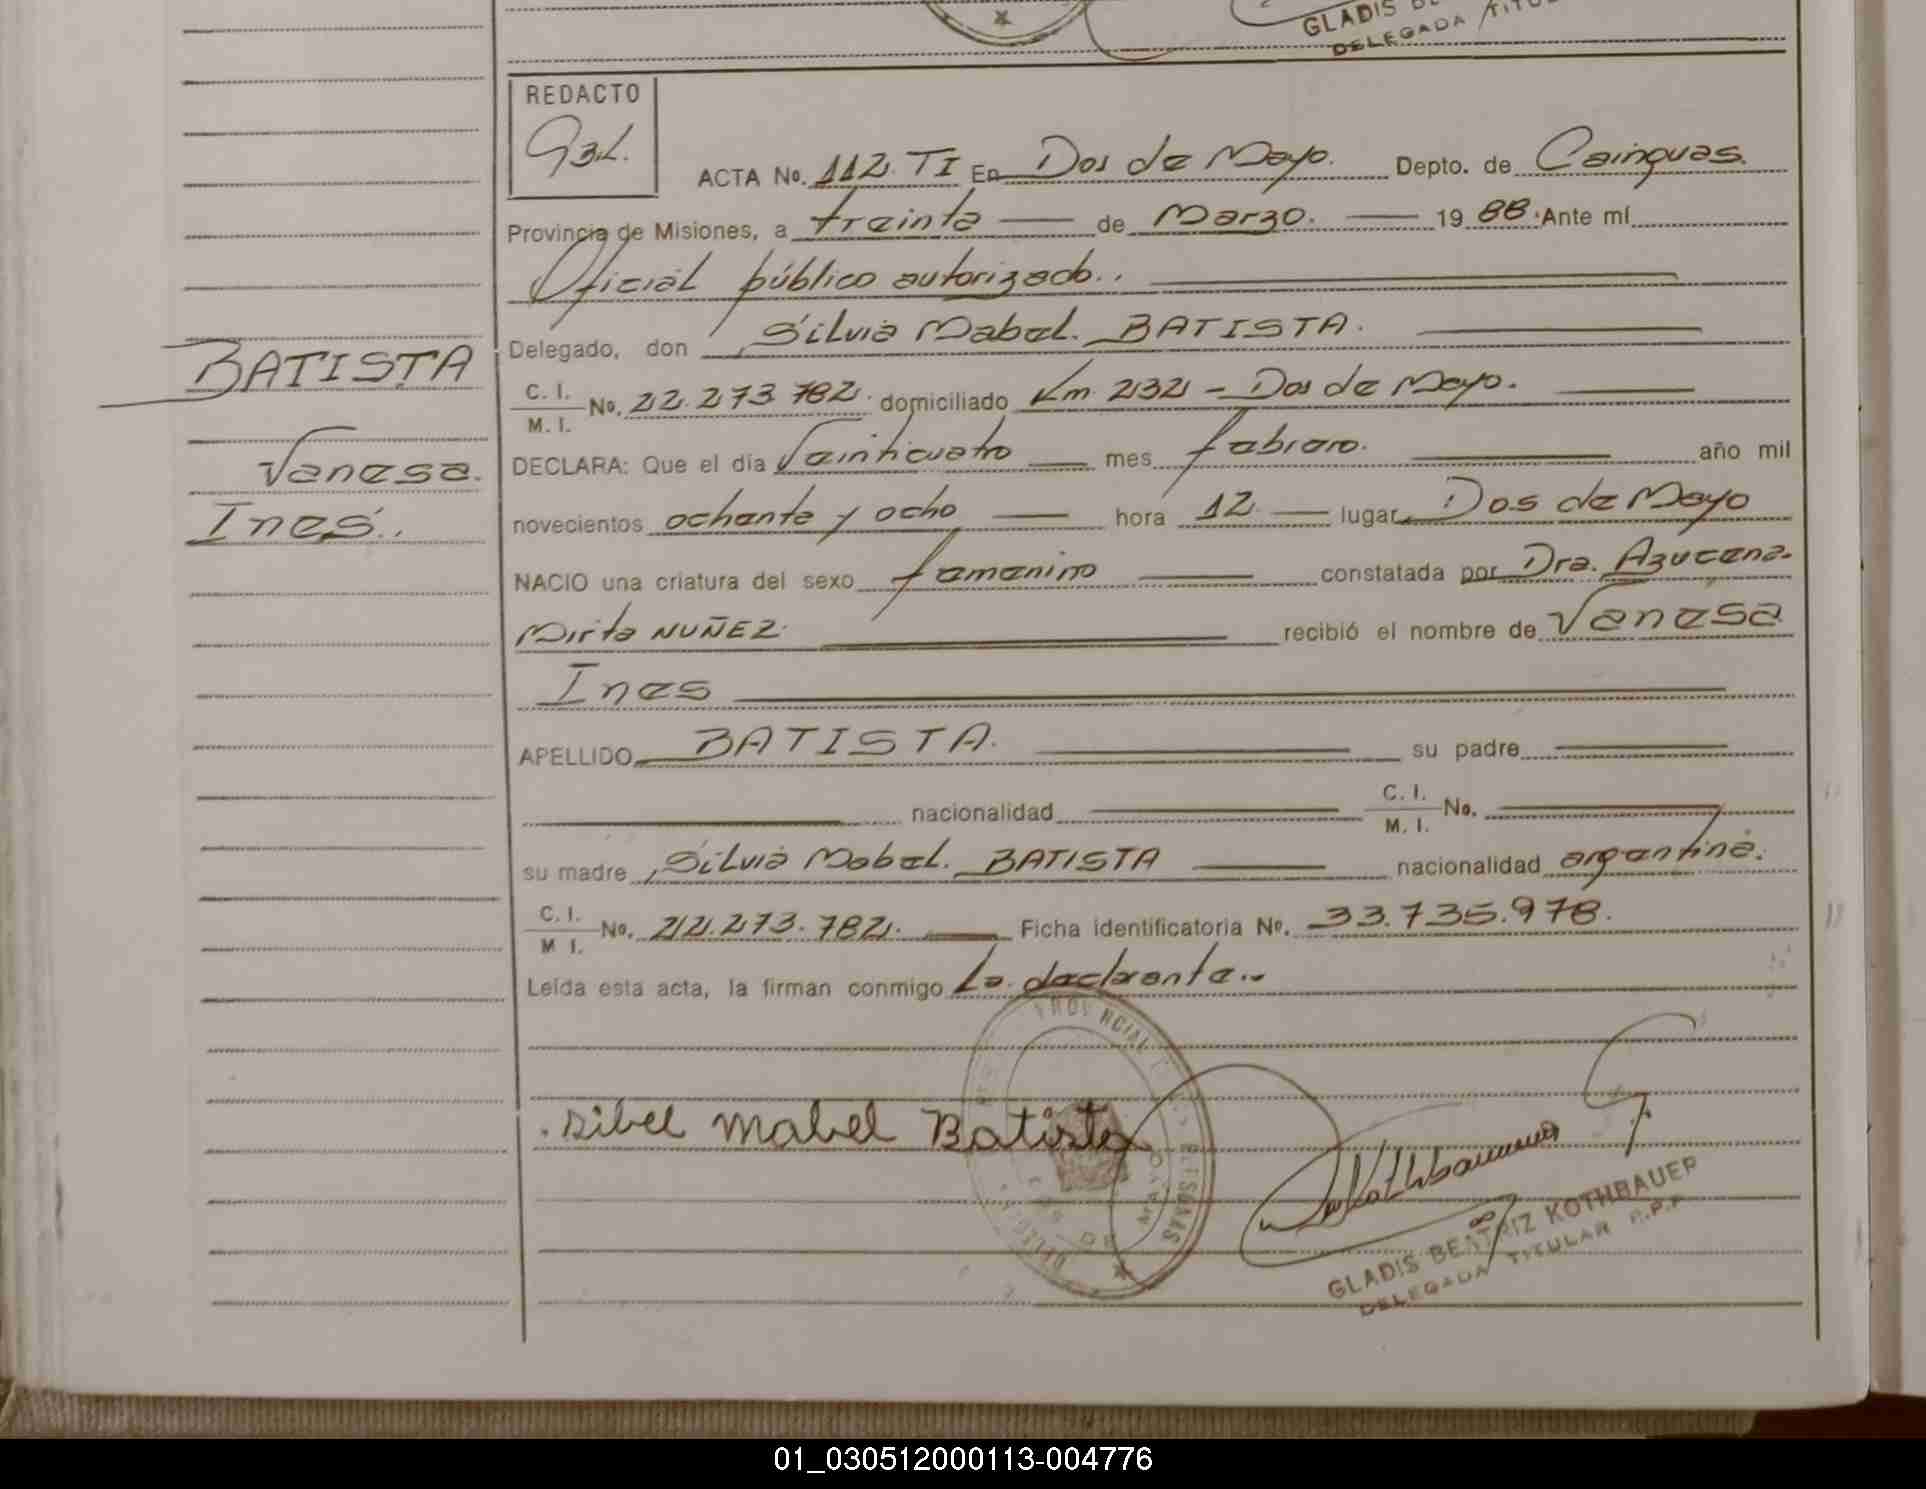 GLADIS
DELEGADA
REDACTO
ACTA No. 112 TI En Dos de Mayo. Depto. de Cainguas.
Provincia de Misiones, a treinta de Marzo. 19 88. Ante mí
Oficial público autorizado..
Delegado, don Silvia Mabel. BATISTA.
BATISTA
C. I.
M. I. No. 22.273.782. domiciliado Km 232 - Dos de Mayo.
Vanesa.
DECLARA: Que el día Veinticuatro mes febrero. año mil
Ines..
novecientos ochenta y ocho hora 12 lugar Dos de Mayo
NACIO una criatura del sexo femenino constatada por Dra. Azucena
Mirta NUÑEZ. recibió el nombre de Vanesa
Ines
APELLIDO BATISTA. su padre
nacionalidad C. I.
M. I. No.
su madre Silvia Mabel. BATISTA nacionalidad argentina.
C. I.
M I. No. 22.273.782. Ficha identificatoria Nº. 33.735.978.
Leída esta acta, la firman conmigo La declarante..
PROVINCIAL
DE
MAYO
Silvel mabel Batista
GLADIS BEATRIZ KOTHBAUER
DELEGADA TITULAR R.P.P
01_030512000113-004776